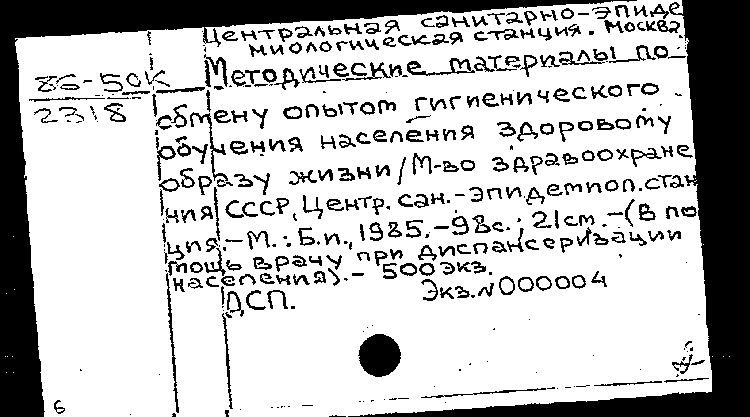 Центральная санитарно-эпиде
миологическая станция. Москва
86-50К
2318
Методические материалы по
обмену опытом гигиенического
обучения населения здоровому
образу жизни/М-во здравоохране
ния СССР, Центр. сан.-эпидемиол. стан
ция.-М.: Б.и., 1985.-98с.; 21см.-(В по
мощь врачу при диспансеризации
населения).- 500экз.
ДСП. Экз.№000004
6